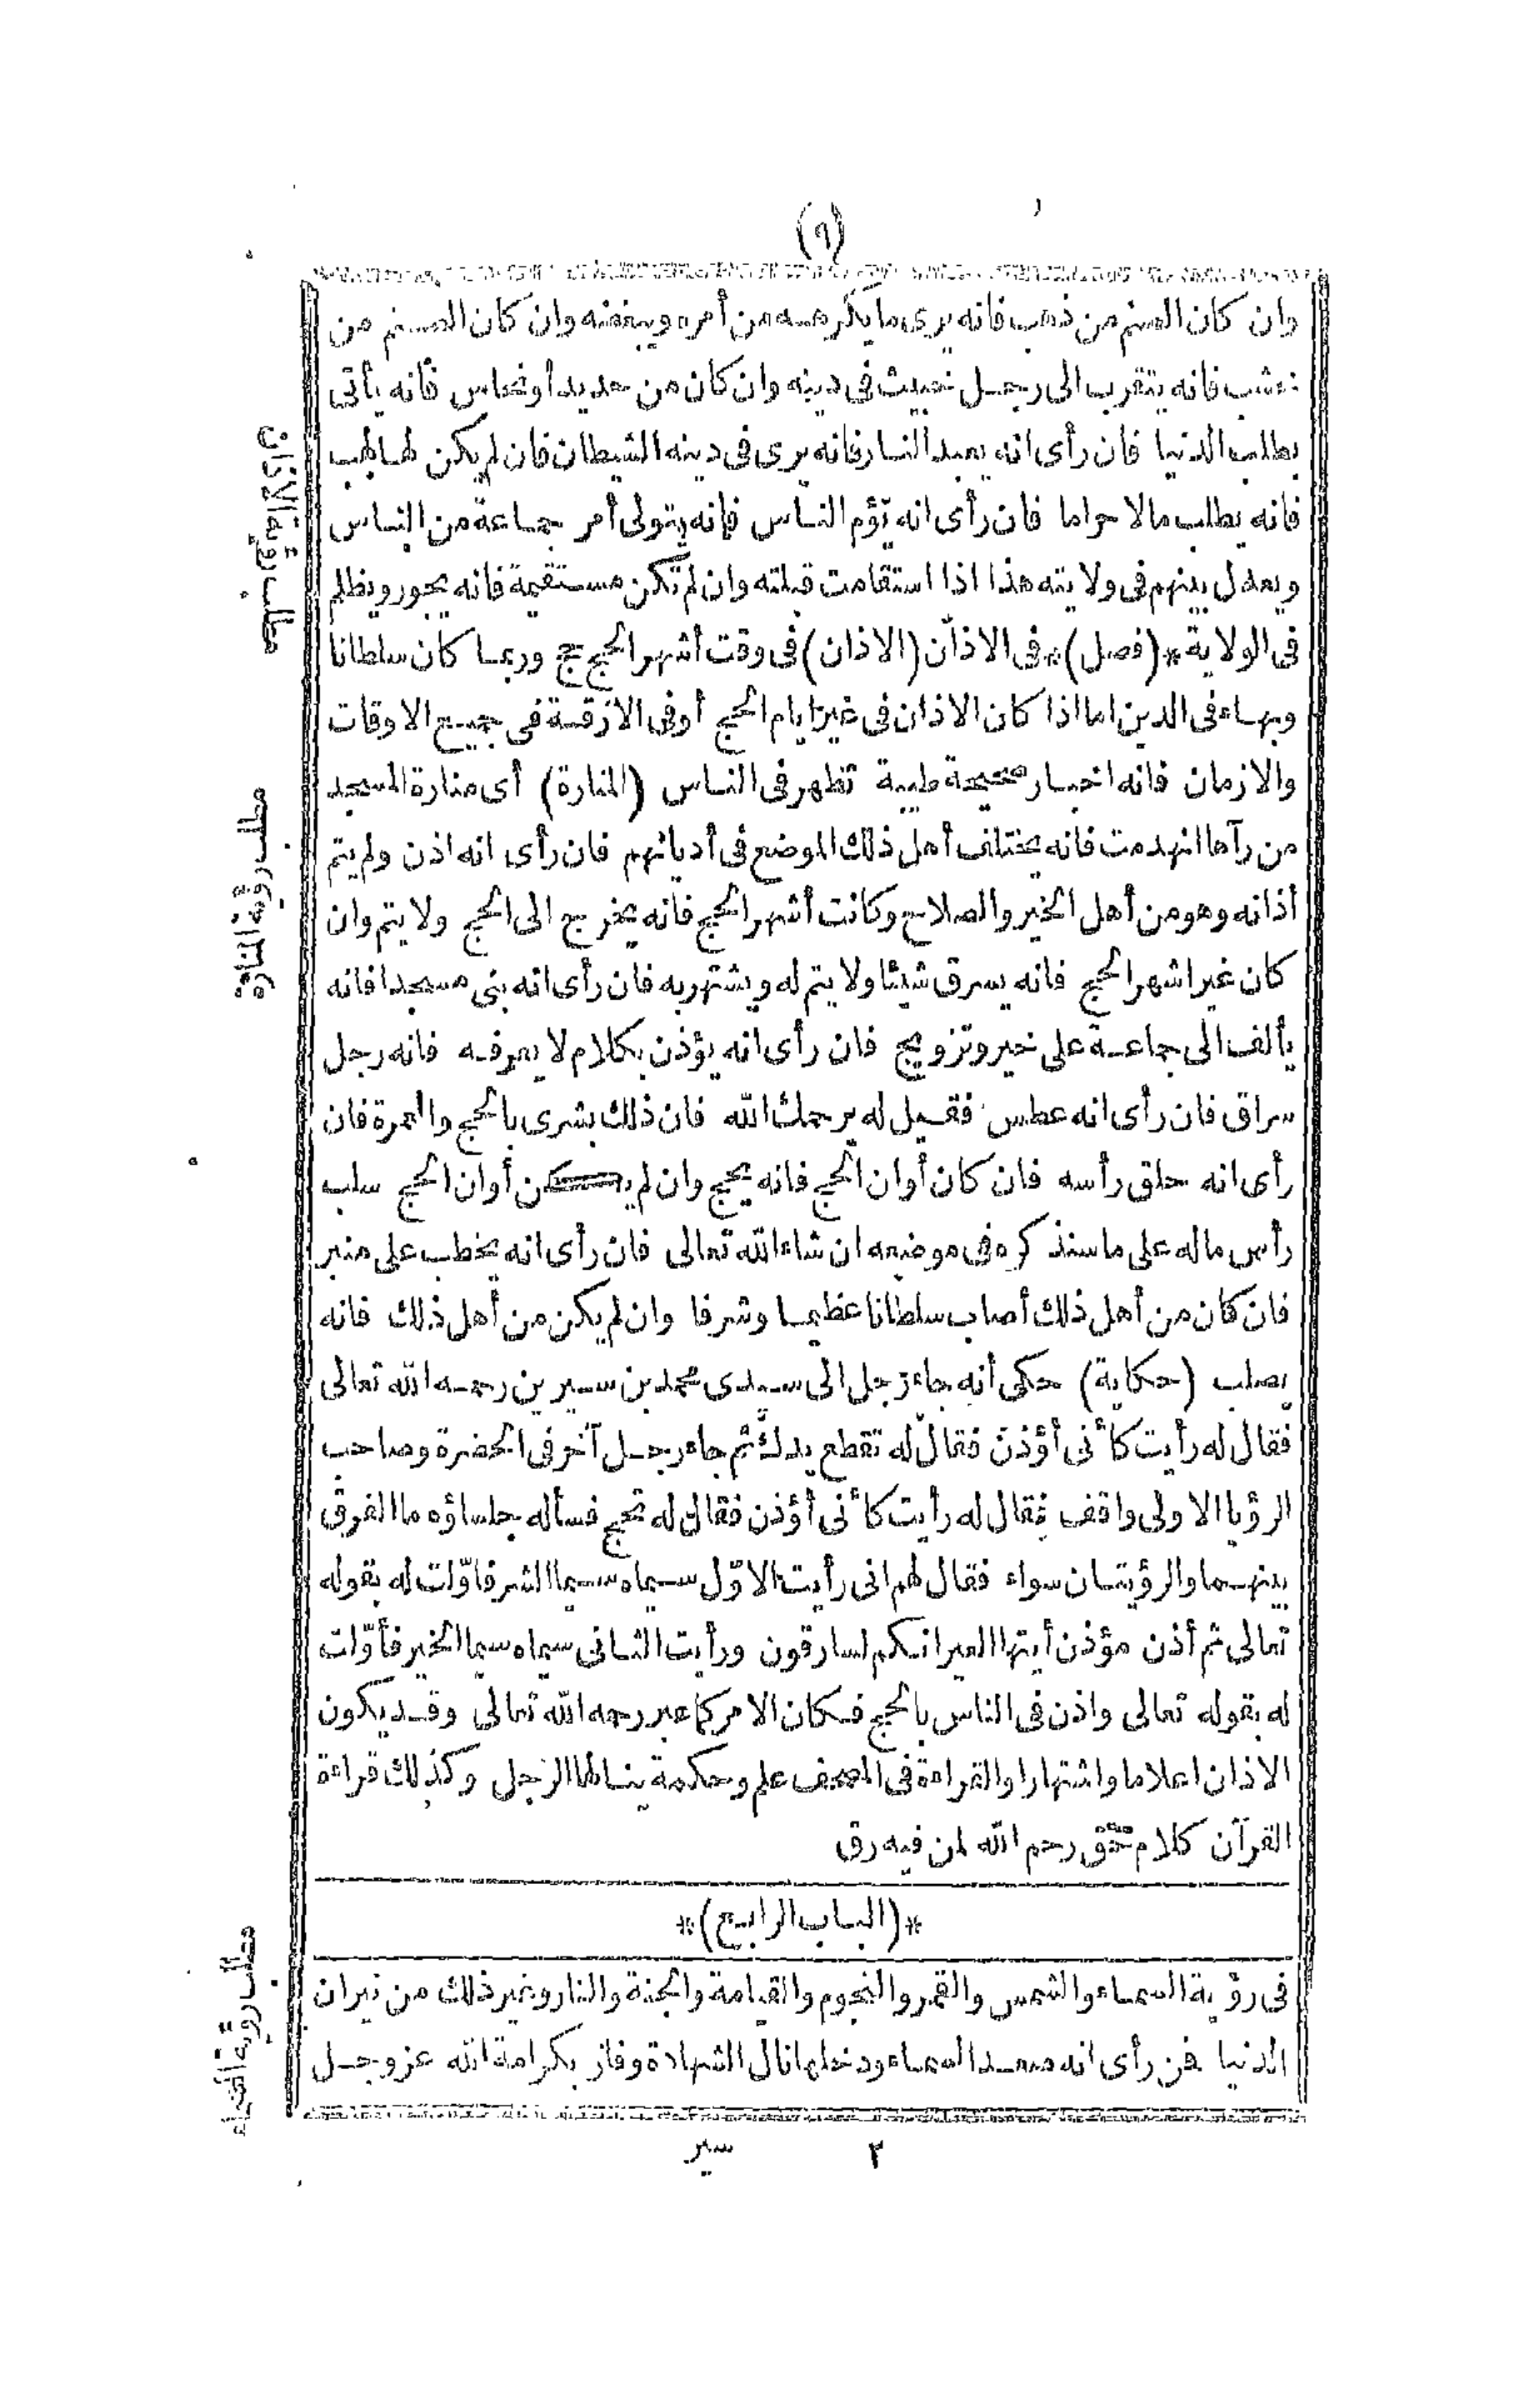 (٩)
وان كان الصنم من ذهب فانه يرى ما يكرهه من أمره ويبغضه وان كان الصنم من
خشب فانه يتقرب الى رجل خبيث فى دينه وان كان من حديد أو نحاس فانه يأتى
بطلب الدنيا فان رأى انه يعبد النار فانه يرى فى دينه الشيطان فان لم يكن لها لهب
فانه يطلب مالا حراما فان رأى انه يؤم الناس فانه يتولى أمر جماعة من الناس
ويعدل بينهم فى ولايته هذا اذا استقامت قبلته وان لم تكن مستقيمة فانه يجور ويظلم
فى الولاية *(فصل)* فى الاذان (الاذان) فى وقت أشهر الحج حج وربما كان سلطانا
وبهاء فى الدين اما اذا كان الاذان فى غير ايام الحج أو فى الازقة فى جميع الاوقات
والازمان فانه اخبار صحيحة طيبة تظهر فى الناس (المنارة) أى منارة المسجد
من رآها انهدمت فانه يختلف أهل ذلك الموضع فى أديانهم فان رأى انه اذن ولم يتم
أذانه وهو من أهل الخير والصلاح وكانت أشهر الحج فانه يخرج الى الحج ولا يتم وان
كان غير اشهر الحج فانه يسرق شيئا ولا يتم له ويشتهر به فان رأى انه بنى مسجدا فانه
يألف الى جماعة على خير وتزويج فان رأى انه يؤذن بكلام لا يعرفه فانه رجل
سراق فان رأى انه عطس فقيل له يرحمك الله فان ذلك بشرى بالحج والعمرة فان
رأى انه حلق رأسه فان كان أوان الحج فانه يحج وان لم يكن أوان الحج سلب
رأس ماله على ما سنذكره فى موضعه ان شاء الله تعالى فان رأى انه يخطب على منبر
فان كان من أهل ذلك أصاب سلطانا عظيما وشرفا وان لم يكن من أهل ذلك فانه
يصلب (حكاية) حكى أنه جاء رجل الى سيدى محمد بن سيرين رحمه الله تعالى
فقال له رأيت كأنى أؤذن فقال له تقطع يدك ثم جاء رجل آخر فى الحضرة وصاحب
الرؤيا الاولى واقف فقال له رأيت كأنى أؤذن فقال له تحج فسأله جلساؤه ما الفرق
بينهما والرؤيتان سواء فقال لهم انى رأيت الاوّل سيماه سيما الشر فاوّلت له بقوله
تعالى ثم أذن مؤذن أيتها العير انكم لسارقون ورأيت الثانى سيماه سيما الخير فأوّلت
له بقوله تعالى واذن فى الناس بالحج فكان الامر كما عبر رحمه الله تعالى وقد يكون
الاذان اعلاما واشتهارا والقراءة فى المصحف علم وحكمة ينالها الرجل وكذلك قراءة
القرآن كلام حق رحم الله لمن فيه رق
*(الباب الرابع)*
فى رؤية السماء والشمس والقمر والنجوم والقيامة والجنة والنار وغير ذلك من نيران
الدنيا فمن رأى انه صعد السماء ودخلها نال الشهادة وفاز بكرامة الله عز وجل
٢ سير
مطلب رؤية الاذان
مطلب رؤية المنارة
مطلب رؤية السماء